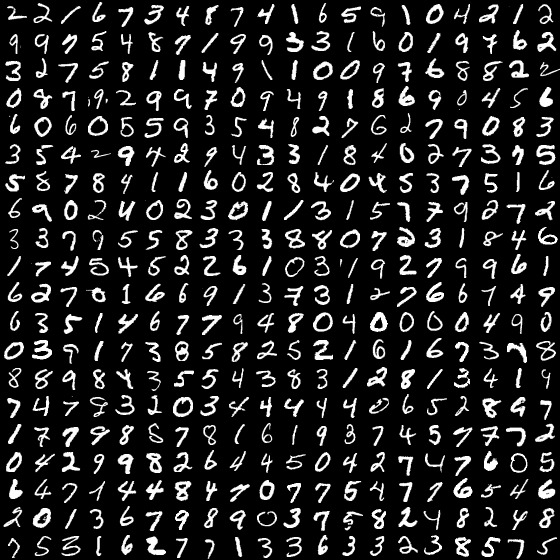 2 2 1 6 7 3 4 8 7 4 1 6 5 9 1 0 4 2 1 2
9 9 7 5 4 8 7 1 9 9 3 3 1 6 0 1 9 7 6 2
3 2 7 5 8 1 1 4 9 1 1 0 0 9 7 6 8 8 2 2
0 8 7 9 2 9 9 7 0 9 4 9 1 8 6 9 0 4 5 6
6 0 6 0 5 5 9 3 5 4 8 2 7 6 2 7 9 0 8 3
3 5 4 2 9 4 2 9 4 3 3 1 8 4 0 2 7 3 7 5
5 8 7 8 4 1 1 6 0 2 8 4 0 4 5 3 7 5 1 6
6 9 0 2 4 0 2 3 0 1 1 3 1 5 7 7 9 2 7 2
3 3 7 9 5 5 8 3 3 3 8 8 0 7 2 3 1 8 4 6
1 7 4 5 4 6 2 2 6 1 0 3 1 9 2 7 9 9 6 1
6 2 7 0 1 6 6 9 1 3 7 3 1 2 7 6 6 7 4 9
6 3 5 1 4 6 7 7 9 4 8 0 4 0 0 0 0 4 9 0
0 3 9 1 7 3 8 5 8 2 5 2 1 6 1 6 7 3 7 8
8 8 9 8 4 3 5 5 4 3 8 3 1 2 8 1 3 4 1 9
7 4 7 9 3 2 0 3 4 4 4 4 4 0 6 5 2 8 9 7
1 7 7 9 8 5 7 8 1 6 1 9 3 7 4 5 7 7 7 2
0 4 2 9 9 8 2 6 4 4 5 0 4 2 7 4 7 6 0 5
6 4 7 1 4 4 8 4 7 0 7 7 5 4 7 7 6 5 4 6
2 0 1 3 6 7 9 8 9 0 3 7 5 8 2 4 8 2 4 8
7 5 3 1 6 2 7 7 1 3 3 6 3 3 2 3 8 5 7 5